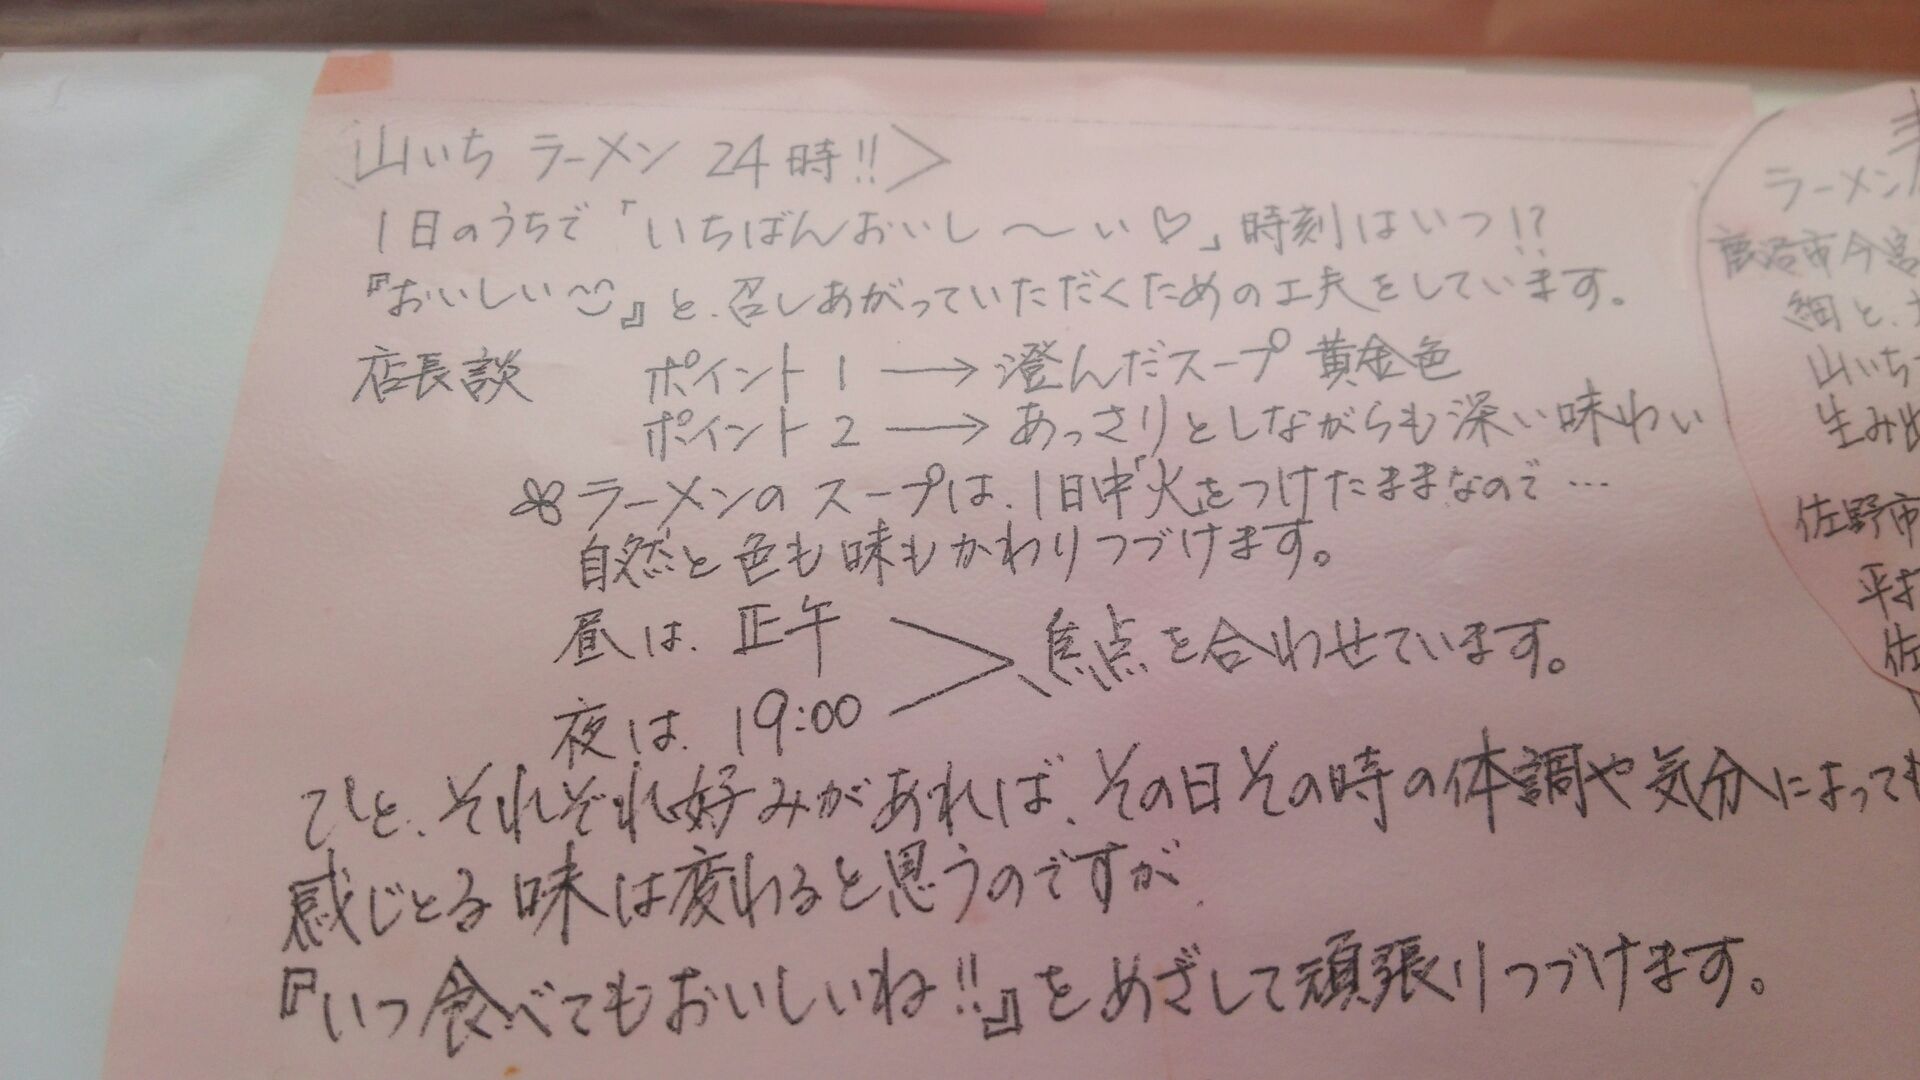 山いち ラーメン 24時!!＞
1日のうちで「いちばんおいし〜い♡」時刻はいつ!?
『おいしい〜』と、召しあがっていただくための工夫をしています。
店長談 ポイント1 → 澄んだスープ 黄金色
ポイント2 → あっさりとしながらも深い味わい
ラーメンのスープは、1日中「火」をつけたままなので…
自然と色も味もかわりつづけます。
昼は、正午
夜は、19:00
焦点を合わせています。
ひと、それぞれ好みがあれば、その日その時の体調や気分によっても
感じとる味は変わると思うのですが、
『いつ食べてもおいしいね!!』をめざして頑張りつづけます。
ラーメン
鹿沼市今宮
細と、
山いち
生み出
佐野市
平打
佐